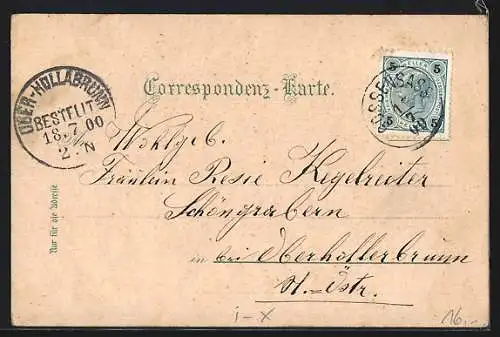 Correspondenz-Karte.
OBER-HOLLABRUNN
BESTELLT
18.7.00
2.N
5 5
5 5
GOSSENSASS
Wohlgeb.
Fräulein Resie Kegelreiter
Schöngrabern
in bei Oberhollerbrunn
N. Östr.
Nur für die Adresse
i-x
16.-